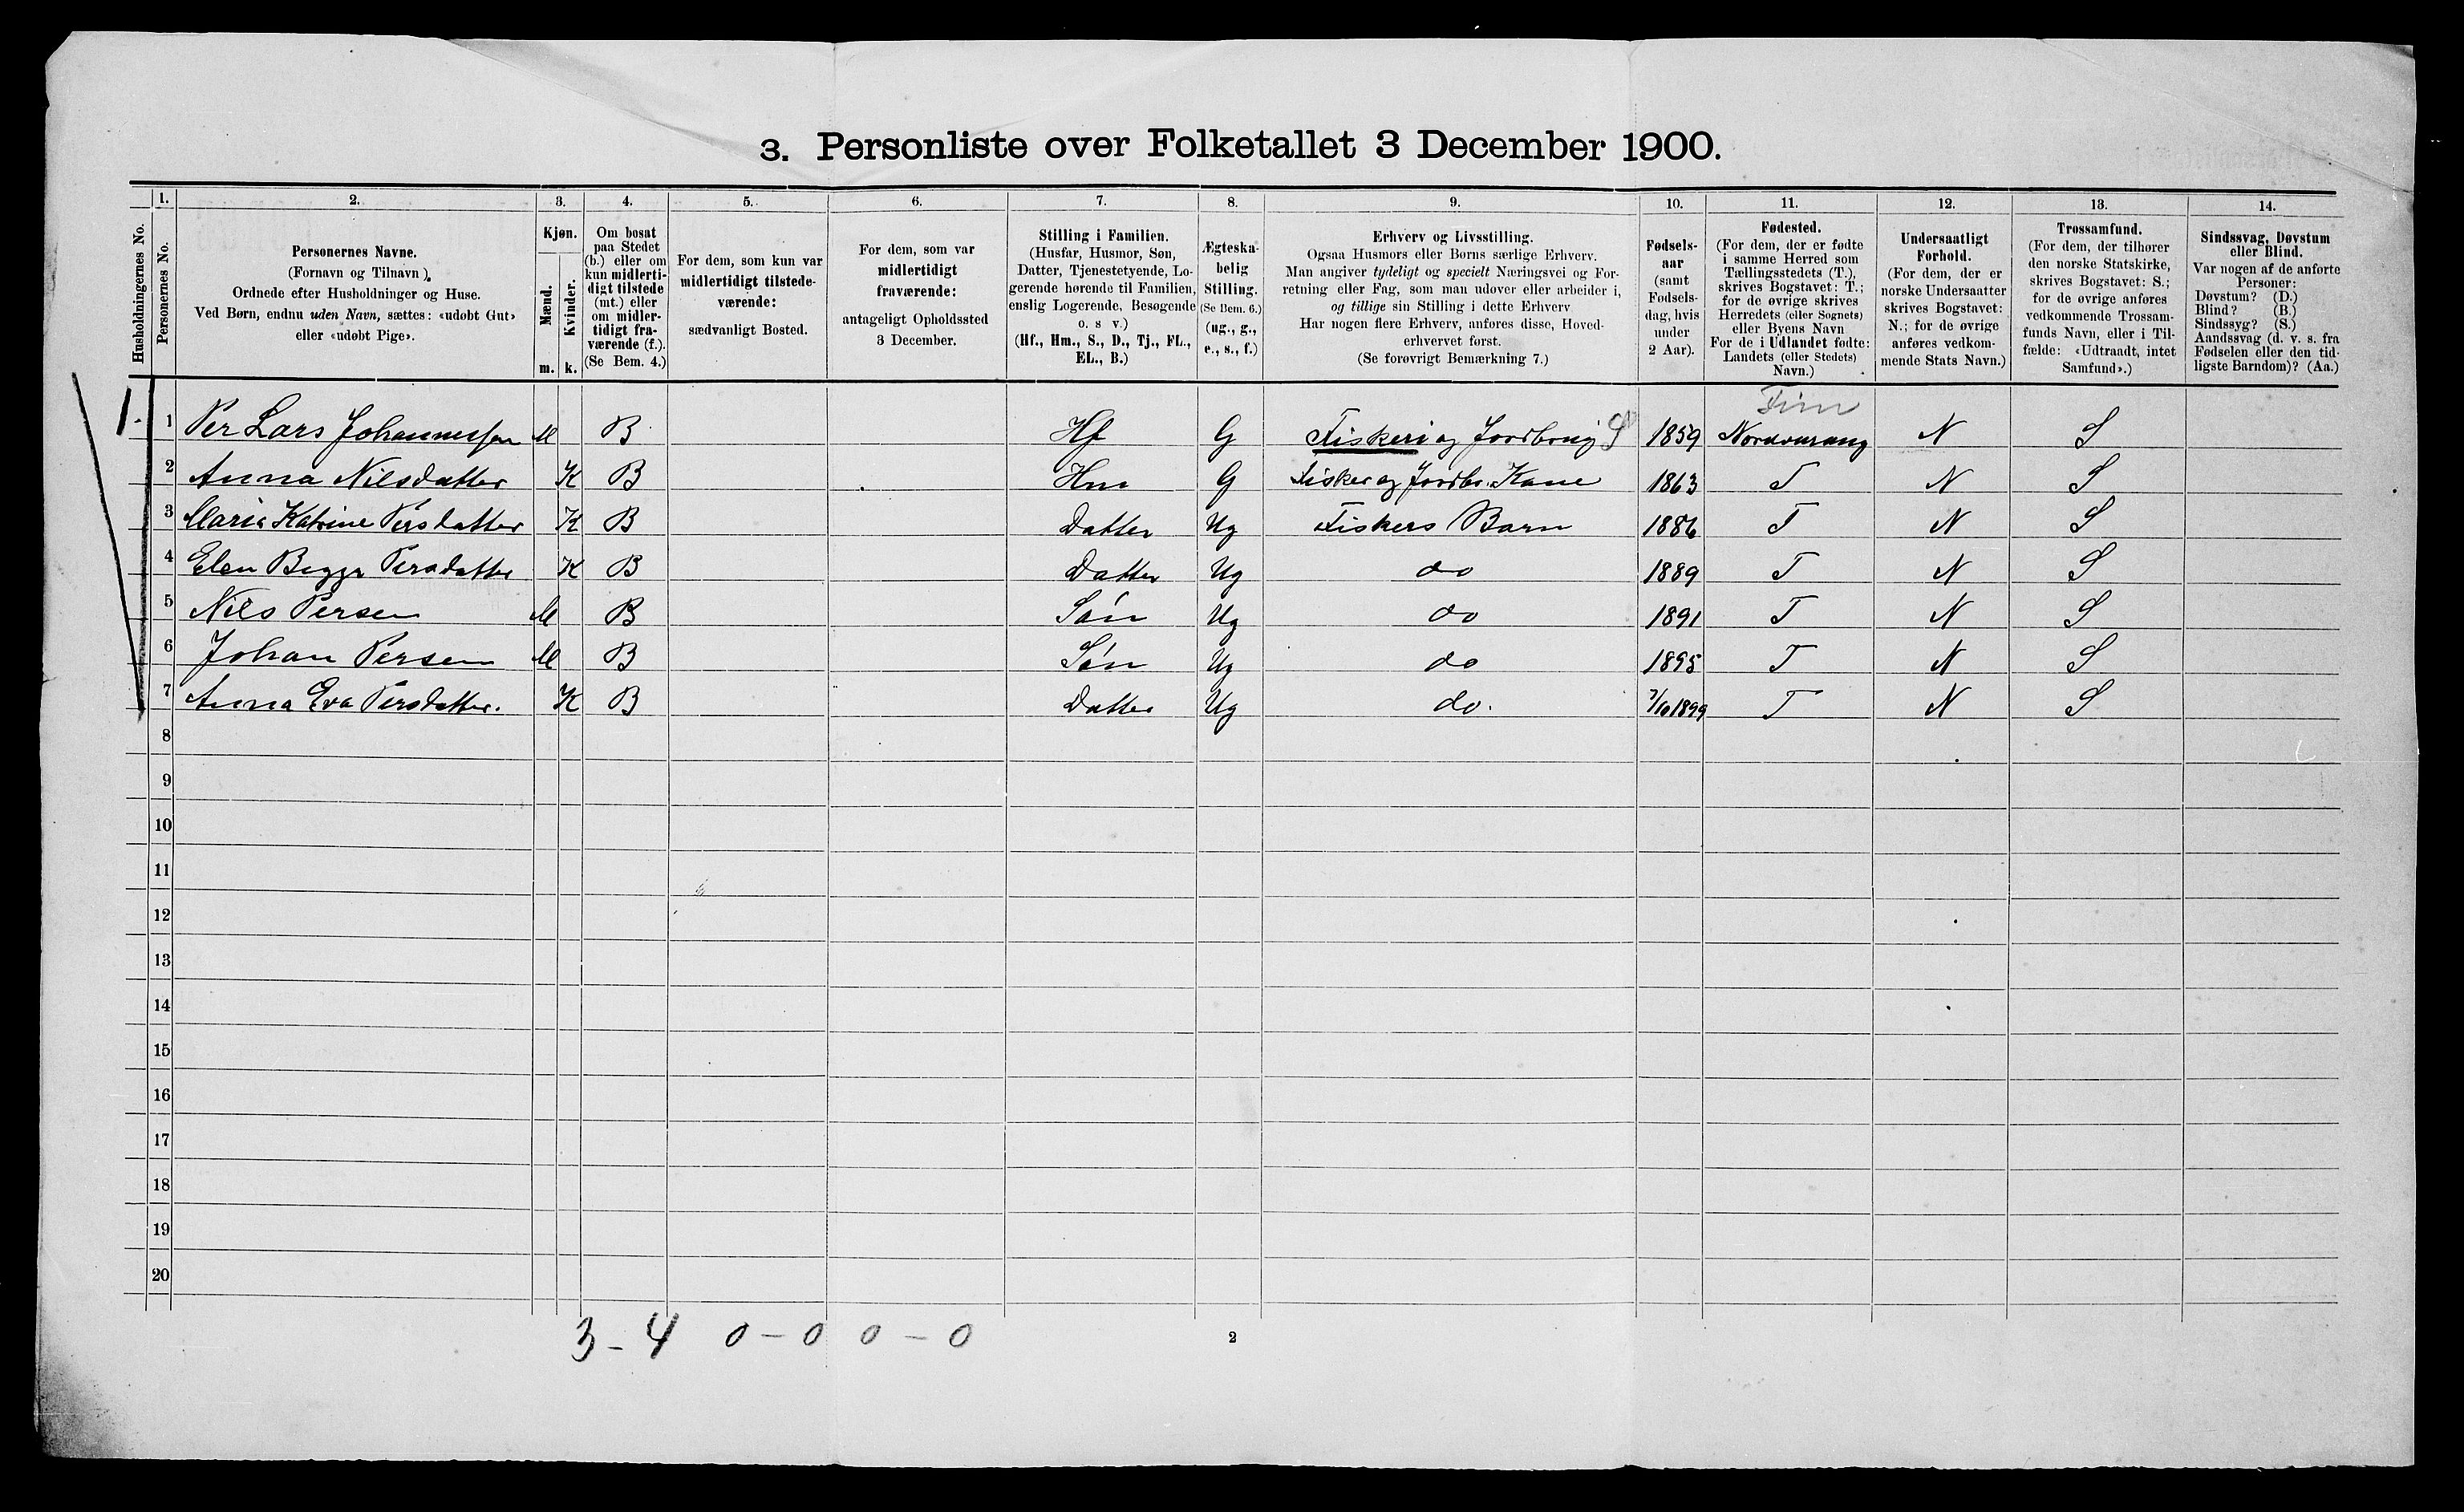 3. Personliste over Folketallet 3 December 1900.
1. 2. 3. 4. 5. 6. 7. 8. 9. 10. 11. 12. 13. 14.
Husholdningernes No.
Personernes No.
Personernes Navne.
(Fornavn og Tilnavn).
Ordnede efter Husholdninger og Huse.
Ved Børn, endnu uden Navn, sættes: «udøbt Gut»
eller «udøbt Pige».
Kjøn.
Mænd.
Kvinder.
m. k.
Om bosat
paa Stedet
(b.) eller om
kun midlerti-
digt tilstede
(mt.) eller
om midler-
tidigt fra-
værende (f.).
(Se Bem. 4.)
For dem, som kun var
midlertidigt tilstede-
værende:
sædvanligt Bosted.
For dem, som var
midlertidigt
fraværende:
antageligt Opholdssted
3 December.
Stilling i Familien.
(Husfar, Husmor, Søn,
Datter, Tjenestetyende, Lo-
gerende hørende til Familien,
enslig Logerende, Besøgende
o. s v.)
(Hf., Hm., S., D., Tj., FL.,
EL., B.)
Ægteska-
belig
Stilling.
(Se Bem. 6.)
(ug., g.,
e., s., f.)
Erhverv og Livsstilling.
Ogsaa Husmors eller Børns særlige Erhverv.
Man angiver tydeligt og specielt Næringsvei og For-
retning eller Fag, som man udøver eller arbeider i,
og tillige sin Stilling i dette Erhverv
Har nogen flere Erhverv, anføres disse, Hoved-
erhvervet først.
(Se forøvrigt Bemærkning 7.)
Fødsels-
aar
(samt
Fødsels-
dag, hvis
under
2 Aar).
Fødested.
(For dem, der er fødte
i samme Herred som
Tællingsstedets (T.),
skrives Bogstavet: T.;
for de øvrige skrives
Herredets (eller Sognets)
eller Byens Navn
For de i Udlandet fødte:
Landets (eller Stedets)
Navn.)
Undersaatligt
Forhold.
(For dem, der er
norske Undersaatter
skrives Bogstavet:
N.; for de øvrige
anføres vedkom-
mende Stats Navn.)
Trossamfund.
(For dem, der tilhører
den norske Statskirke,
skrives Bogstavet: S.;
for de øvrige anføres
vedkommende Trossam-
funds Navn, eller i Til-
fælde: «Udtraadt, intet
Samfund».)
Sindssvag, Døvstum
eller Blind.
Var nogen af de anførte
Personer:
Døvstum? (D.)
Blind? (B.)
Sindssyg? (S.)
Aandssvag (d. v. s. fra
Fødselen eller den tid-
ligste Barndom)? (Aa.)
Finn
1 1 Per Lars Johannessen M B Hf G Fiskeri og Jordbrug S 1859 N S
2 Anna Nilsdatter K B Hm G Fisker og Jordbr. Kone 1863 T N S
3 Maria Katrine Persdatter K B Datter Ug Fiskers Barn 1886 T N S
4 Elen Bigga Persdatter K B Datter Ug do 1889 T N S
5 Nils Persen M B Søn Ug do 1891 T N S
6 Johan Persen M B Søn Ug do 1895 T N S
7 Anna Eva Persdatter. K B Datter Ug do. 7/10 1899 T N S
8
9
10
11
12
13
14
15
16
17
18
19
20
3 - 4 0 - 0 0 - 0
2